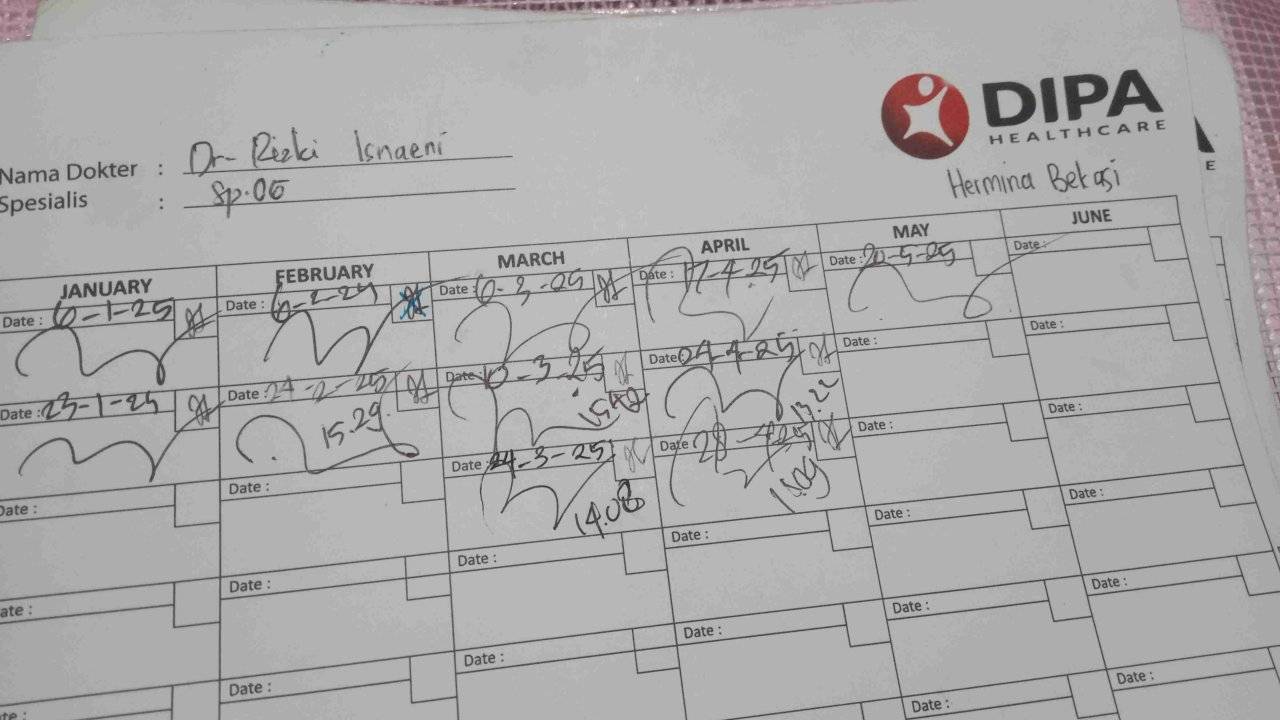 DIPA
HEALTHCARE
Nama Dokter : Dr- Rizki Isnaeni
Spesialis : Sp.OG
Hermina Bekasi
JANUARY FEBRUARY MARCH APRIL MAY JUNE
Date : 6-1-25 Date : 6-2-25 Date : 6-3-25 Date : 17-4-25 Date : 20-5-25 Date :
Date : 23-1-25 Date : 24-2-25 Date : 10-3-25 Date : 04-4-25 Date : Date :
15.29 13.22
Date : Date : Date : 24-3-25 Date : 28-4-25 Date : Date :
14.08
Date : Date : Date : Date : Date : Date :
Date : Date : Date : Date : Date :
Date : Date : Date :